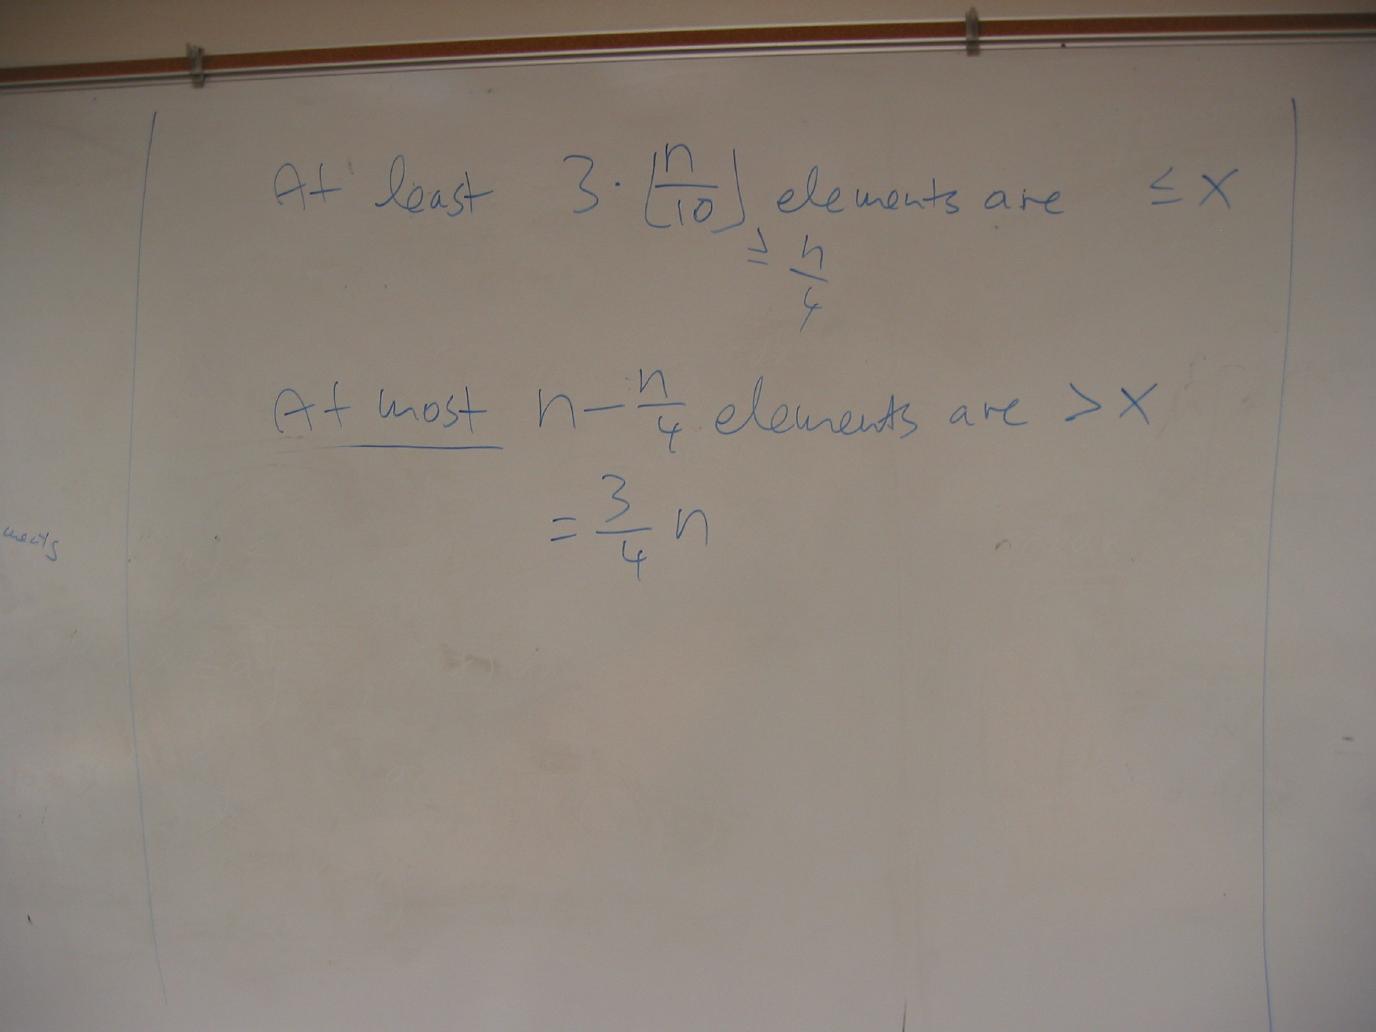 At least 3 · ⌊n/10⌋ elements are ≤ x
≥ n/4
At most n - n/4 elements are > x
= 3/4 n